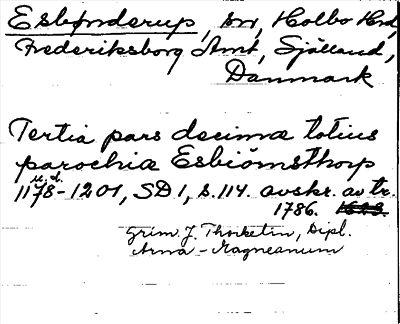 Esbønderup, sn, Holbo Hrd,
Frederiksborg Amt, Sjælland,
Danmark
Tertia pars decimæ totius
parochiæ Esbiömsthorp
u.d.
1178-1201, SD 1, s. 114. avskr. av tr.
1786.
Grim. J. Thorkelin, Dipl.
Arna-Magneanum